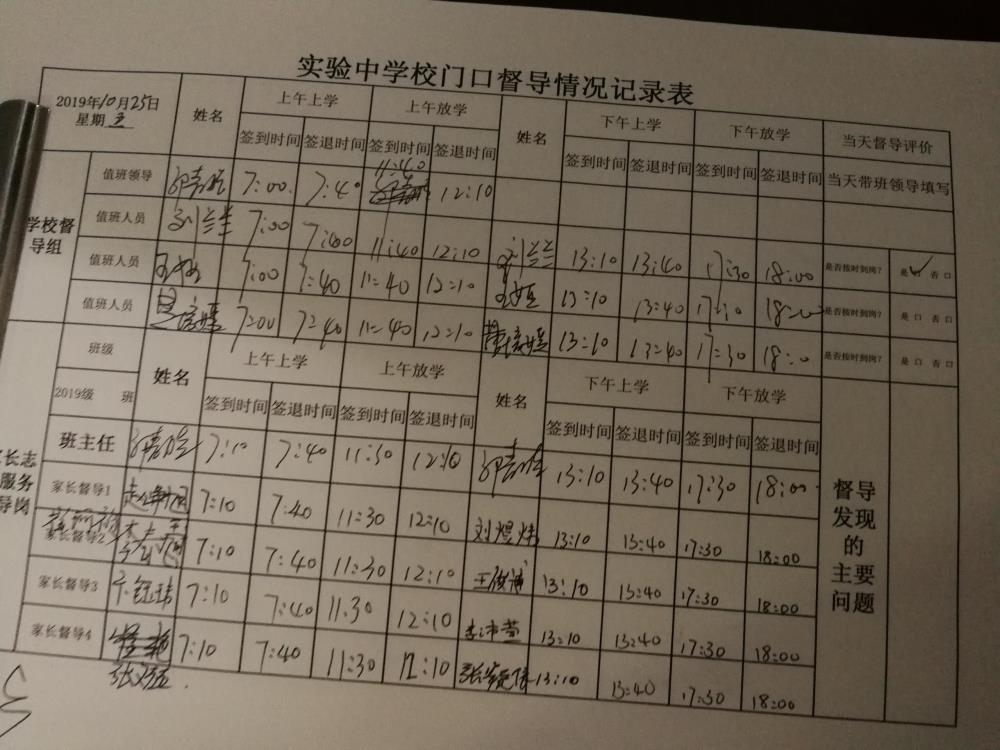 实验中学校门口督导情况记录表
2019年10月25日
星期五
姓名 上午上学 上午放学 姓名 下午上学 下午放学 当天督导评价
签到时间 签退时间 签到时间 签退时间 签到时间 签退时间 签到时间 签退时间 当天带班领导填写
学校督导组
值班领导 7:00 7:40 11:40 12:10
值班人员 刘兰兰 7:00 7:00 11:40 12:10 刘兰兰 13:10 13:40 17:30 18:00 是否按时到岗? 是口✓ 否口
值班人员 7:00 7:40 11:40 12:10 13:10 13:40 17:30 18:00 是否按时到岗? 是口 否口
值班人员 7:00 7:40 11:40 12:10 13:10 13:40 17:30 18:00 是否按时到岗? 是口 否口
班级 姓名 上午上学 上午放学 姓名 下午上学 下午放学
2019级 班 签到时间 签退时间 签到时间 签退时间 签到时间 签退时间 签到时间 签退时间
长志
服务
导岗
班主任 7:10 7:40 11:30 12:10 13:10 13:40 17:30 18:00
家长督导1 7:10 7:40 11:30 12:10 刘煜炜 13:10 13:40 17:30 18:00
家长督导2 7:10 7:40 11:30 12:10 13:10 13:40 17:30 18:00
家长督导3 7:10 7:40 11:30 12:10 13:10 13:40 17:30 18:00
家长督导4 7:10 7:40 11:30 12:10 13:10 13:40 17:30 18:00
督导
发现
的
主要
问题